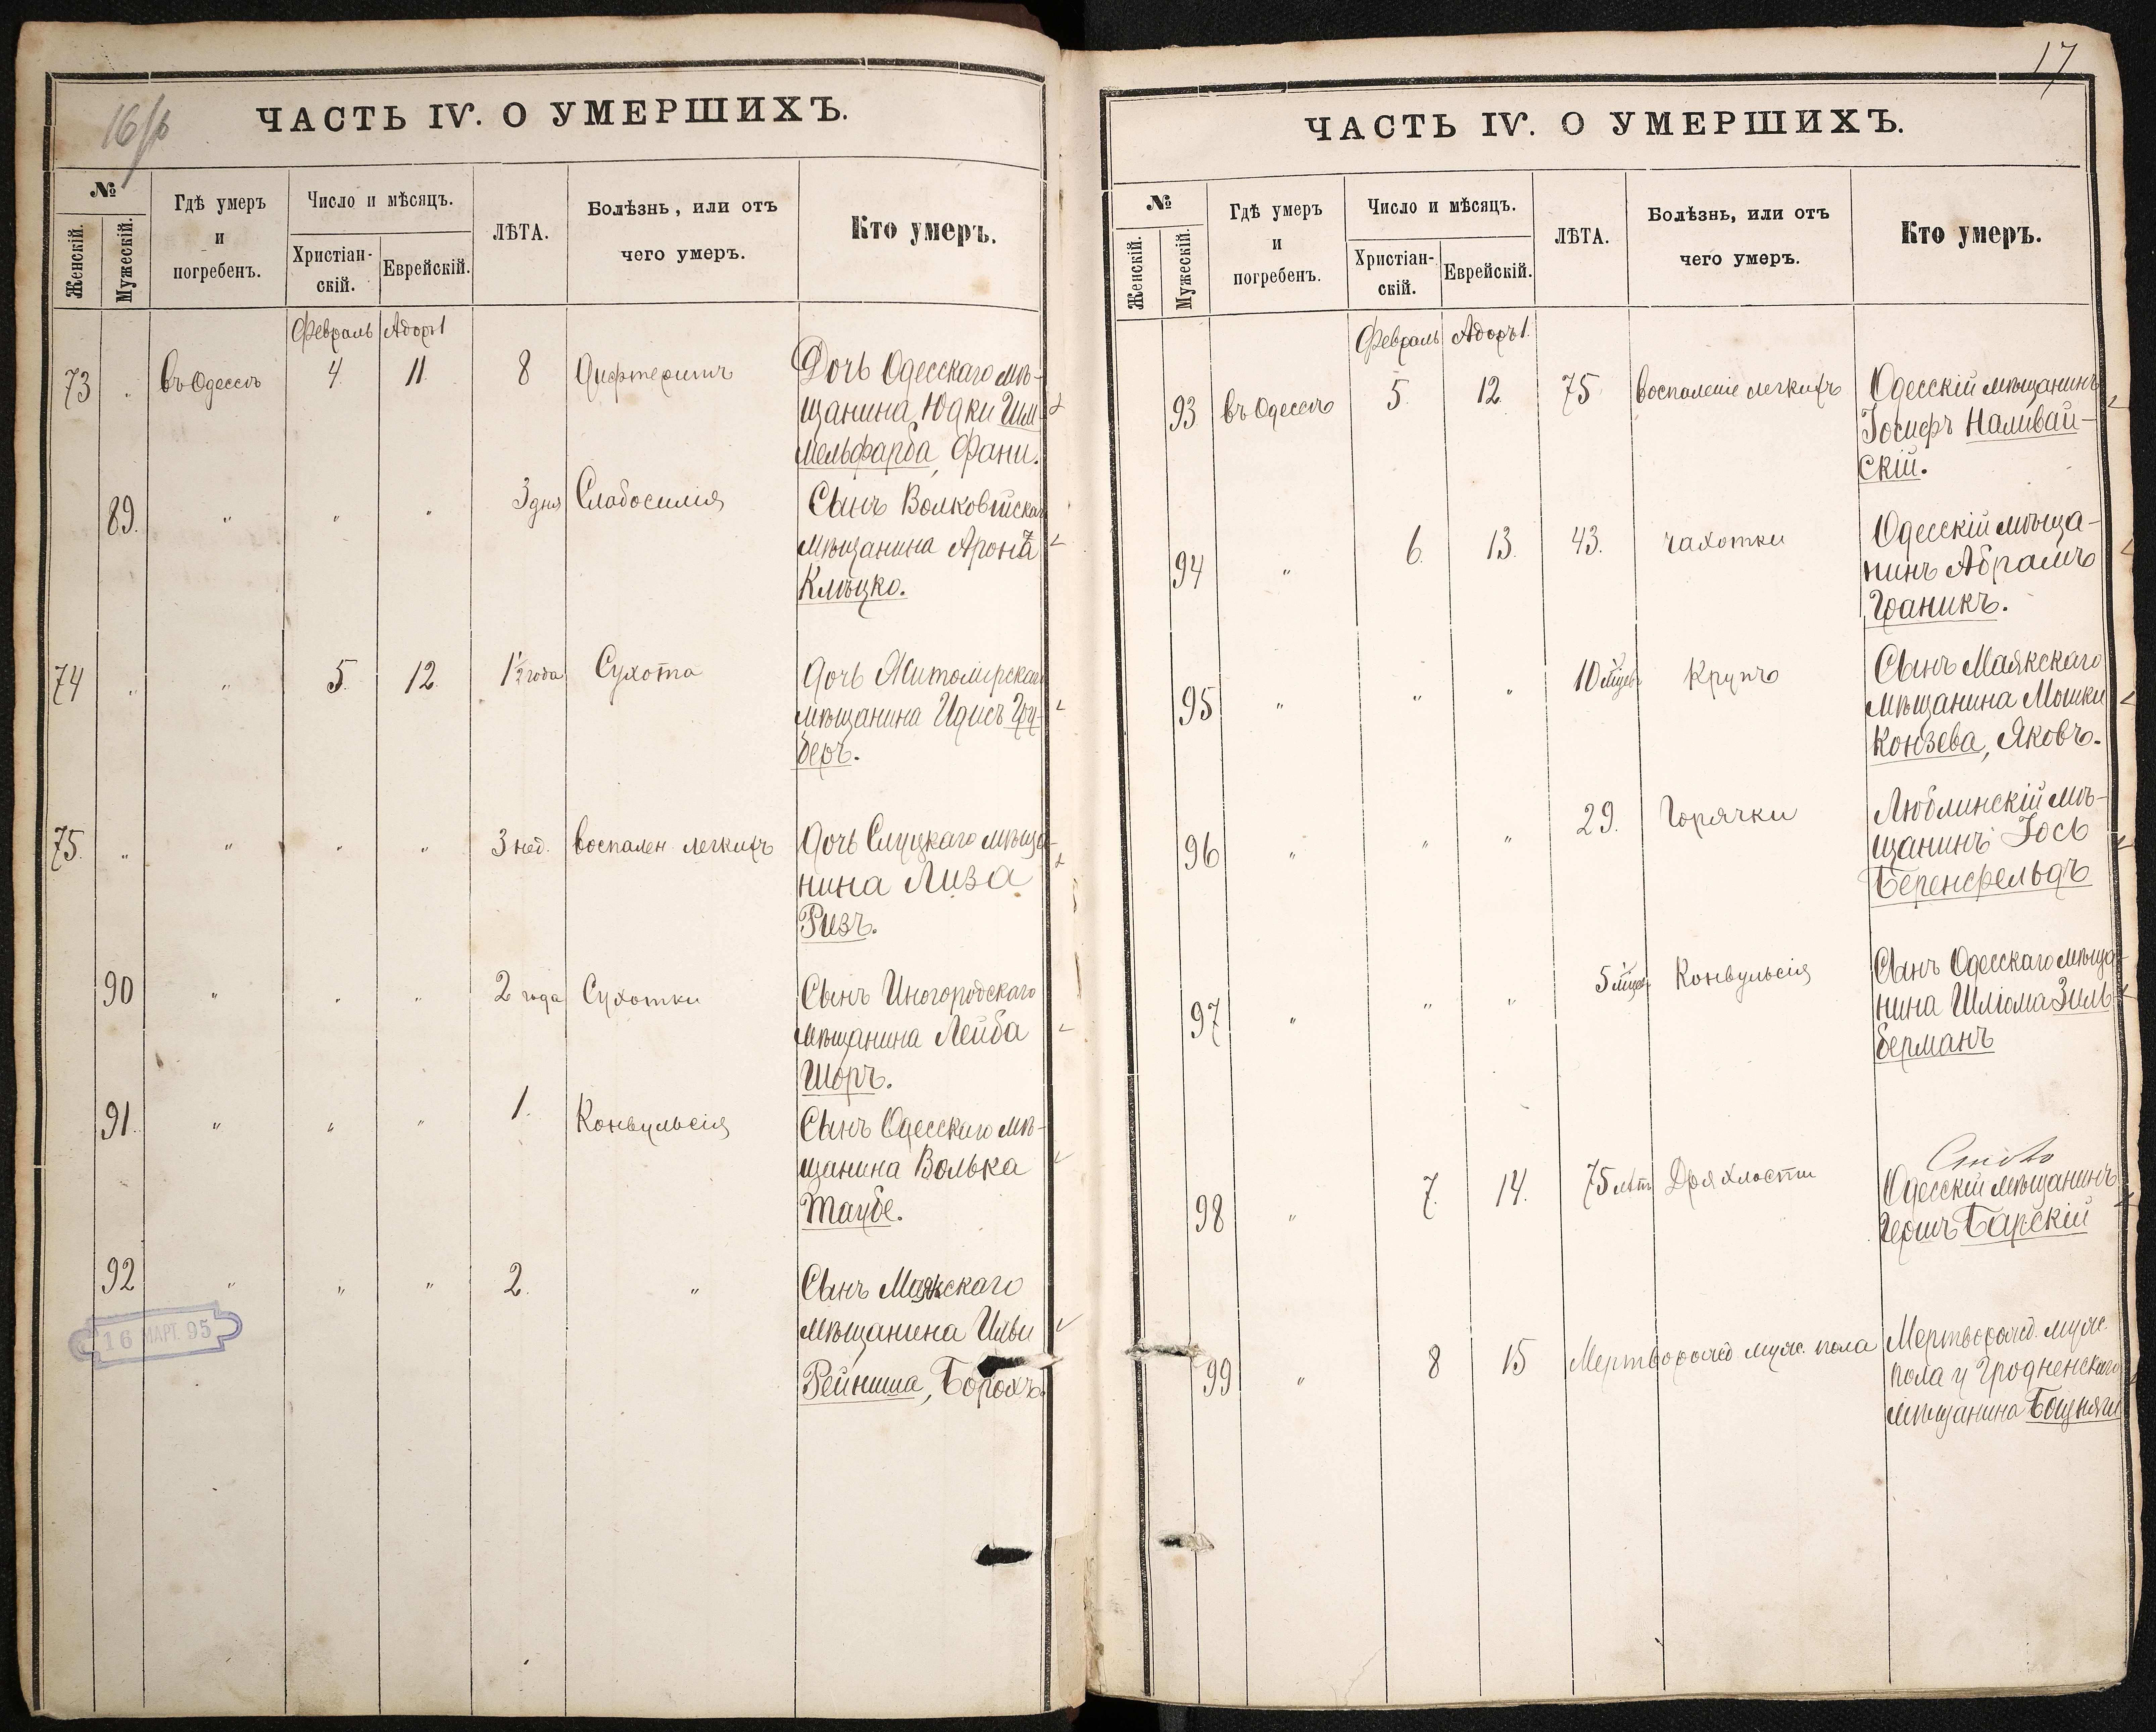 16/р
ЧАСТЬ IV. О УМЕРШИХЪ.
№
Женскій.
Мужескій.
Гдѣ умеръ
и
погребенъ.
Число и мѣсяцъ.
Христіан-
скій.
Еврейскій.
ЛѢТА.
Болѣзнь, или отъ
чего умеръ.
Кто умеръ.
Февраль Адоръ 1
73 " въ Одессѣ 4. 11. 8 Дифтеритъ Дочь Одесскаго мѣ-
щанина Юдки Гим-
мельфарба, Фани.
89. " " " 3 дня Слабосилія Сынъ Волковыскаго
мѣщанина Арона
Клѣцко.
74 " " 5. 12. 1½ года Сухота Дочь Житомірскаго
мѣщанина Идисъ Гру-
беръ.
75. " " " " 3 нед. воспален. легкихъ Дочь Слуцкаго мѣща-
нина Лиза
Ризъ.
90 " " " 2 года Сухотки Сынъ Иногородскаго
мѣщанина Лейба
Шоръ.
91. " " " 1. Конвульсія Сынъ Одесскаго мѣ-
щанина Волька
Таубе.
92 " " " 2. " Сынъ Маякскаго
мѣщанина Ильи
Рейниша, Борохъ.
16 МАРТ. 95
17
ЧАСТЬ IV. О УМЕРШИХЪ.
№
Женскій.
Мужескій.
Гдѣ умеръ
и
погребенъ.
Число и мѣсяцъ.
Христіан-
скій.
Еврейскій.
ЛѢТА.
Болѣзнь, или отъ
чего умеръ.
Кто умеръ.
Февраль Адоръ 1.
93 въ Одессѣ 5. 12. 75 воспаленіе легкихъ Одесскій мѣщанинъ
Іосифъ Наливай-
скій.
94 " 6. 13. 43. чахотки Одесскій мѣща-
нинъ Абрамъ
Граникъ.
95 " " " 10 мѣсяц. Крупъ Сынъ Маякскаго
мѣщанина Мошки
Конзева, Яковъ.
96 " " " 29. Горячки Люблинскій мѣ-
щанинъ Іось
Беренфельдъ
97 " " " 5 мѣсяц. Конвульсія Сынъ Одесскаго мѣща-
нина Шліома Зиль-
берманъ
98 " 7. 14. 75 лѣтъ Дряхлости Одесскій мѣщанинъ
Гершъ Барскій
99 " 8 15 Мертворожд муж. пола Мертворожд. муж.
пола у Гродненскаго
мѣщанина